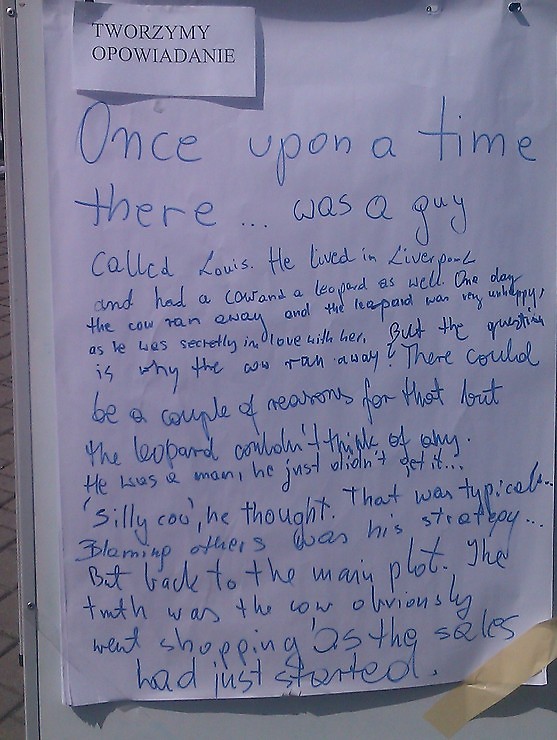 TWORZYMY
OPOWIADANIE
Once upon a time
there ... was a guy
called Louis. He lived in Liverpool
and had a cow and a leopard as well. One day
the cow ran away and the leopard was very unhappy,
as he was secretly in love with her. But the question
is why the cow ran away? There could
be a couple of reasons for that but
the leopard couldn't think of any.
He was a man, he just didn't get it...
'Silly cow', he thought. That was typical...
Blaming others was his strategy...
But back to the main plot. The
truth was the cow obviously
went shopping as the sales
had just started.